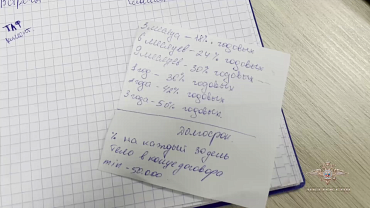 3 месяца - 18% годовых
6 месяцев - 24% годовых
9 месяцев - 30% годовых
1 год - 36% годовых
2 года - 42% годовых
3 года - 50% годовых
Долгосрок
% на каждый 30 день
Тело в конце договора
min - 50.000